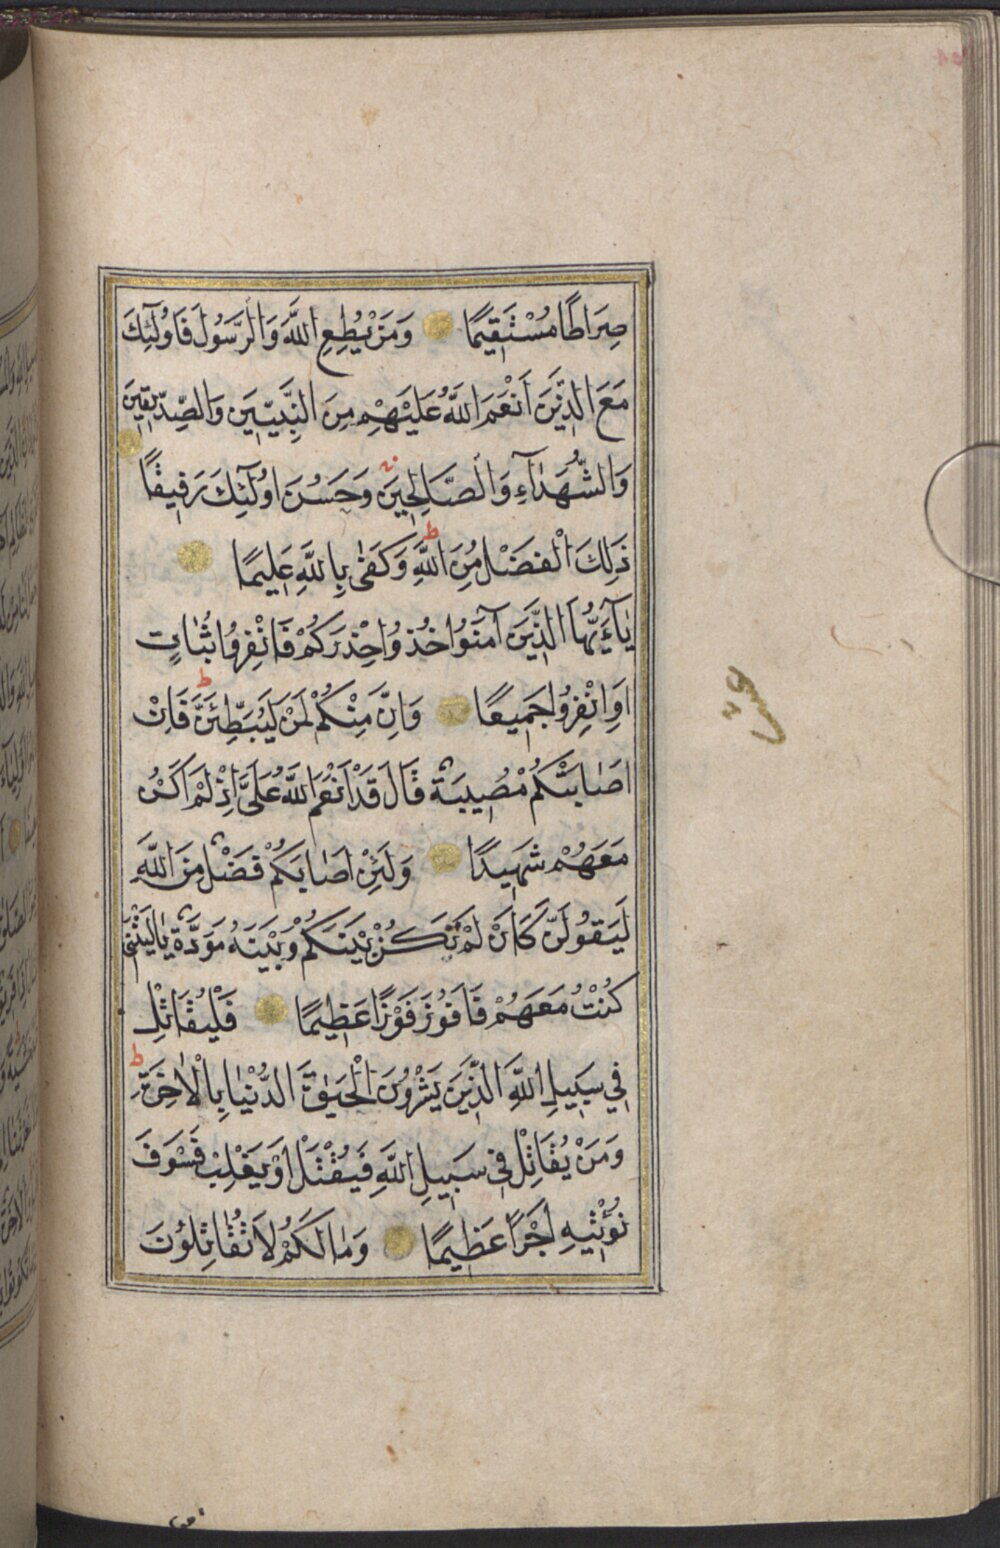 صِرَاطًا مُسْتَقِيمًا وَمَنْ يُطِعِ اللَّهَ وَالرَّسُولَ فَاُولٰٓئِكَ
مَعَ الَّذِينَ اَنْعَمَ اللَّهُ عَلَيْهِمْ مِنَ النَّبِيّينَ وَالصِّدّيقِينَ
وَالشُّهَدَآءِ وَالصَّالِحِينَ وَحَسُنَ اُولٰٓئِكَ رَفِيقًا
ذٰلِكَ الْفَضْلُ مِنَ اللَّهِ وَكَفٰى بِاللَّهِ عَلِيمًا
يَآءَيُّهَا الَّذِينَ آمَنُوا خُذُوا حِذْرَكُمْ فَانْفِرُوا ثُبَاتٍ
اَوِ انْفِرُوا جَمِيعًا وَاِنَّ مِنْكُمْ لَمَنْ لَيُبَطِّئَنَّ فَاِنْ
اَصَابَتْكُمْ مُصِيبَةٌ قَالَ قَدْ اَنْعَمَ اللَّهُ عَلَيَّ اِذْ لَمْ اَكُنْ
مَعَهُمْ شَهِيدًا وَلَئِنْ اَصَابَكُمْ فَضْلٌ مِنَ اللَّهِ
لَيَقُولَنَّ كَاَنْ لَمْ تَكُنْ بَيْنَكُمْ وَبَيْنَهُ مَوَدَّةٌ يَالَيْتَنِى
كُنْتُ مَعَهُمْ فَاَفُوزَ فَوْزًا عَظِيمًا فَلْيُقَاتِلْ
فِي سَبِيلِ اللَّهِ الَّذِينَ يَشْرُونَ الْحَيٰوةَ الدُّنْيَا بِالْاٰخِرَةِ
وَمَنْ يُقَاتِلْ فِي سَبِيلِ اللَّهِ فَيُقْتَلْ اَوْ يَغْلِبْ فَسَوْفَ
نُؤْتِيهِ اَجْرًا عَظِيمًا وَمَا لَكُمْ لَا تُقَاتِلُونَ